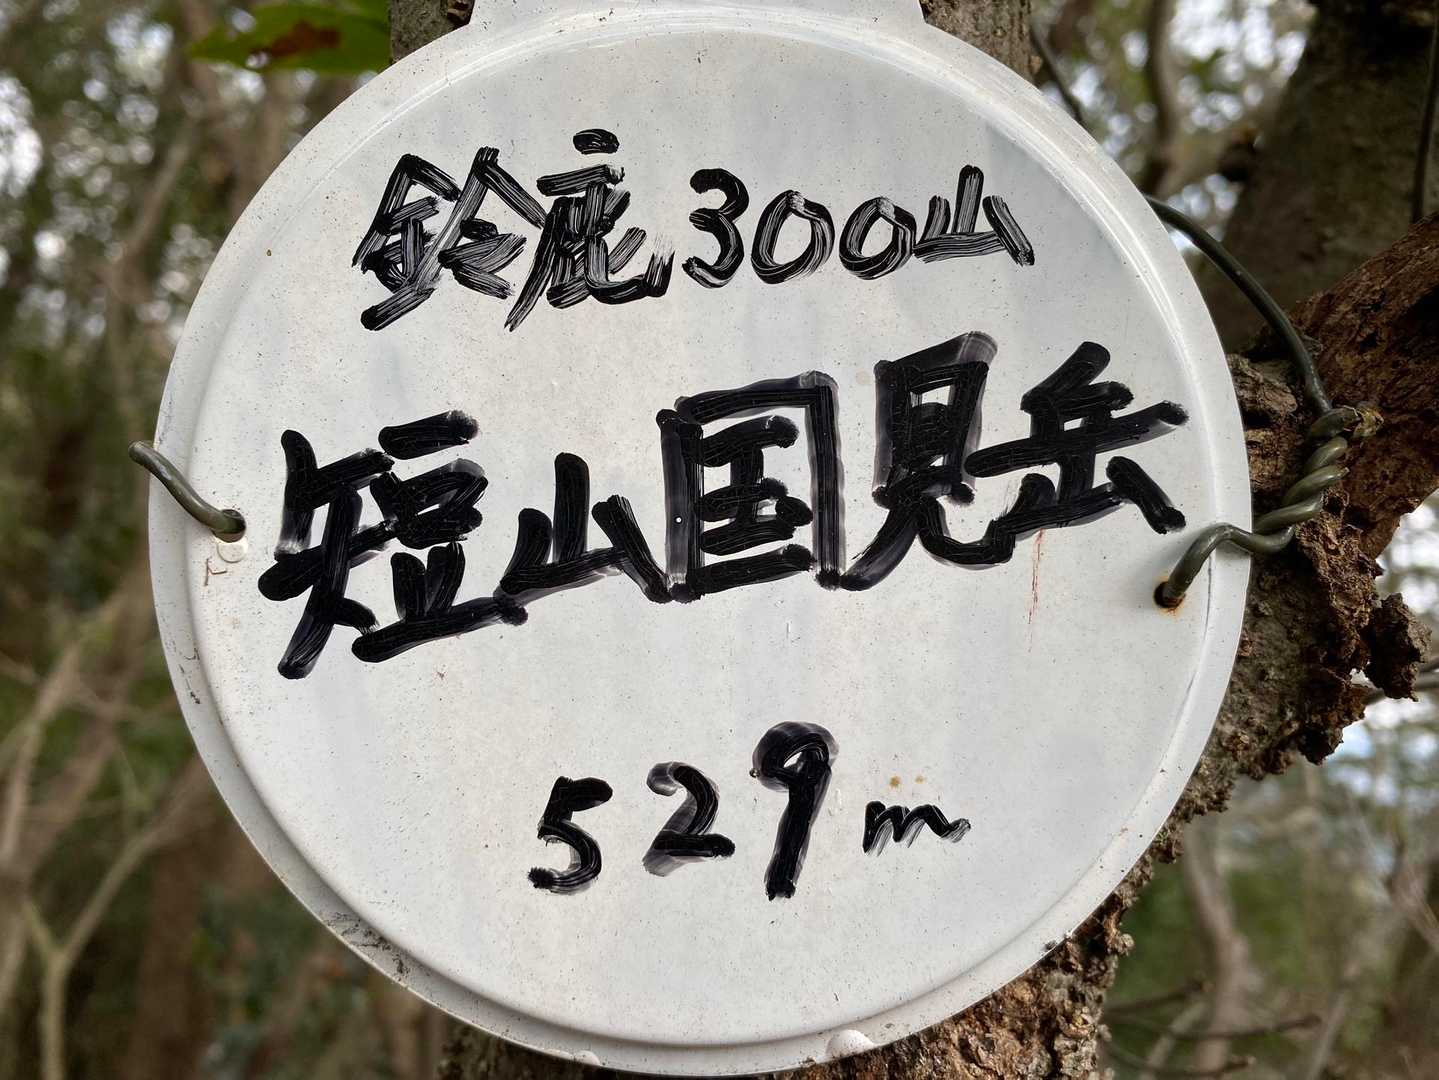 鈴鹿300山
短山国見岳
529m